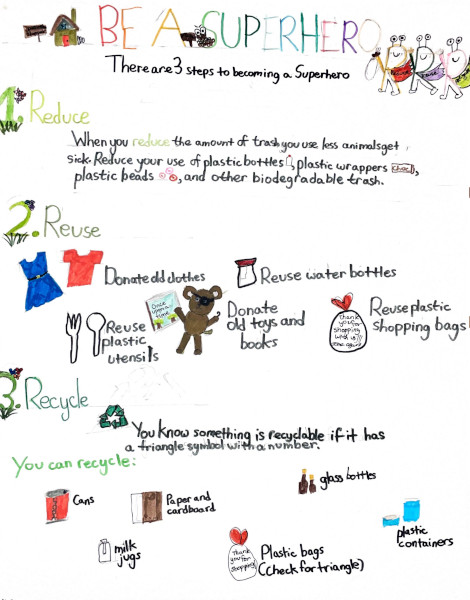 BE A SUPERHERO
There are 3 steps to becoming a Superhero
1. Reduce
When you reduce the amount of trash you use less animals get
sick. Reduce your use of plastic bottles, plastic wrappers,
plastic beads, and other biodegradable trash.
2. Reuse
Donate old clothes
Reuse water bottles
Once
upon a
time
Reuse
plastic
utensils
Donate
old toys and
books
Thank
you for
shopping
Reuse plastic
shopping bags!
3. Recycle
You know something is recyclable if it has
a triangle symbol with a number.
You can recycle:
Cans
Paper and
cardboard
glass bottles
plastic
containers
milk
jugs
Thank
you for
shopping
Plastic bags
(Check for triangle)